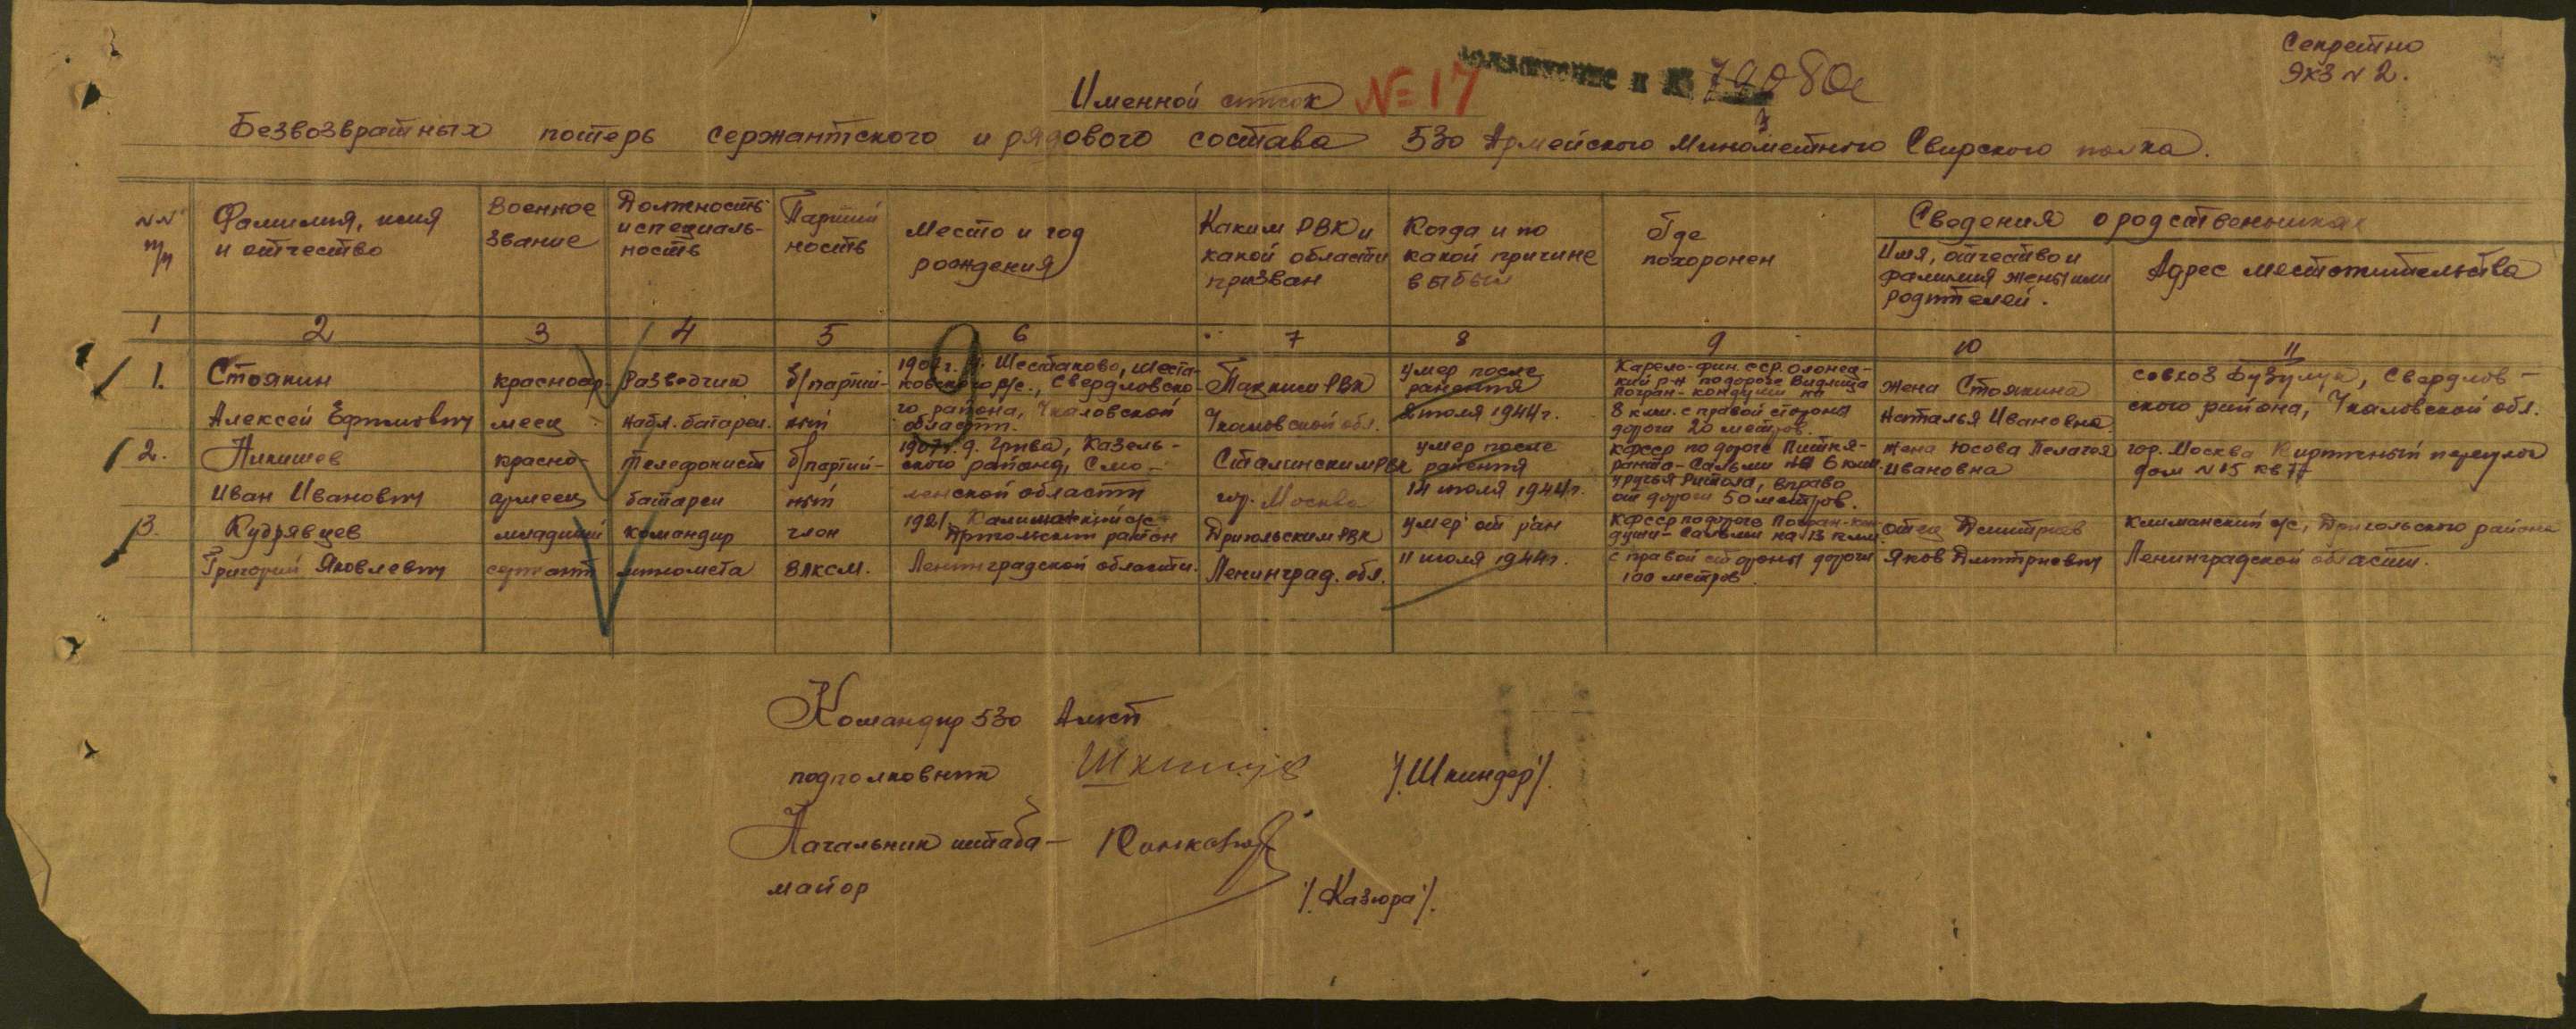 Секретно
Экз № 2.
Именной список № 17
Безвозвратных потерь сержантского и рядового состава 530 Армейского Миномётного Свирского полка.
№№ п/п
Фамилия, имя и отчество
Военное звание
Должность и специальность
Партийность
Место и год рождения
Каким РВК и какой области призван
Когда и по какой причине выбыл
Где похоронен
Сведения о родственниках
Имя, отчество и фамилия жены или родителей.
Адрес местожительства
1 2 3 4 5 6 7 8 9 10 11
1.
Стоякин
Алексей Ефимович
красноар-
меец
Разведчик
набл. батареи.
б/партий-
ный
Шестаково, Шеста-
ковского с/с., Свердловско-
го района, Чкаловской
области.
РВК
Чкаловской обл.
умер после
ранения
июля 1944г.
Карело-фин. сср. Олонец-
кий р-н по дороге Видлица
Погран-кондуши на
8 клм. с правой стороны
дороги 20 метров.
Жена Стоякина
Наталья Ивановна.
совхоз Бузулук, Свердлов-
ского района, Чкаловской обл.
2.
Иван Иванович
красно-
армеец
телефонист
батареи
б/партий-
ный
1907г. д. Грива, Казель-
ского района, Смо-
ленской области
Сталинским РВК
гор. Москва
умер после
ранения
14 июля 1944г.
КФССР по дороге Питкя-
ранта-Сальми на 6 клм.
вправо
от дороги 50 метров.
жена Юсова Пелагея
Ивановна
гор. Москва Кирпичный переулок
дом № 15 кв
3.
Кудрявцев
Григорий Яковлевич
младший
сержант
командир
миномета
член
ВЛКСМ.
1921
район
Ленинградской области.
РВК
Ленинград. обл.
умер от ран
11 июля 1944г.
КФССР по дороге Погран-кон-
души-Сальми на 13 клм.
с правой стороны дороги
100 метров
отец Дмитриев
Яков Дмитриевич
с/с, района
Ленинградской области.
Командир 530 Амсп
подполковник /.Шкиндер/.
Начальник штаба-
майор /.Казюра/.